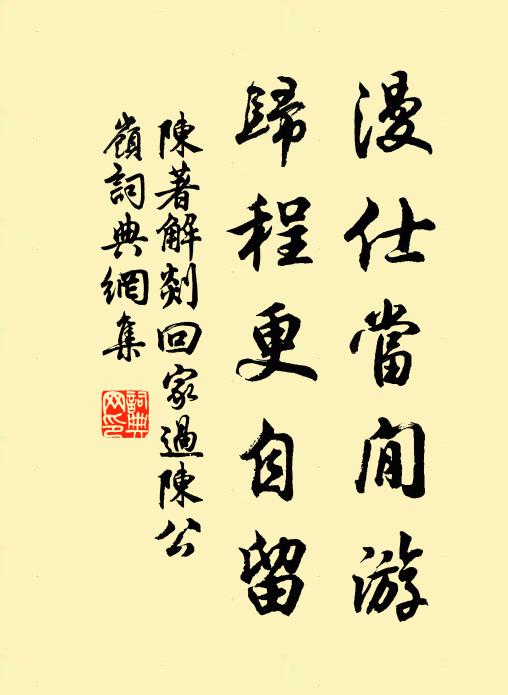 漫仕當閒游
歸程更自留
陳著解剡回家過陳公
嶺詞典網集
詞典
网印